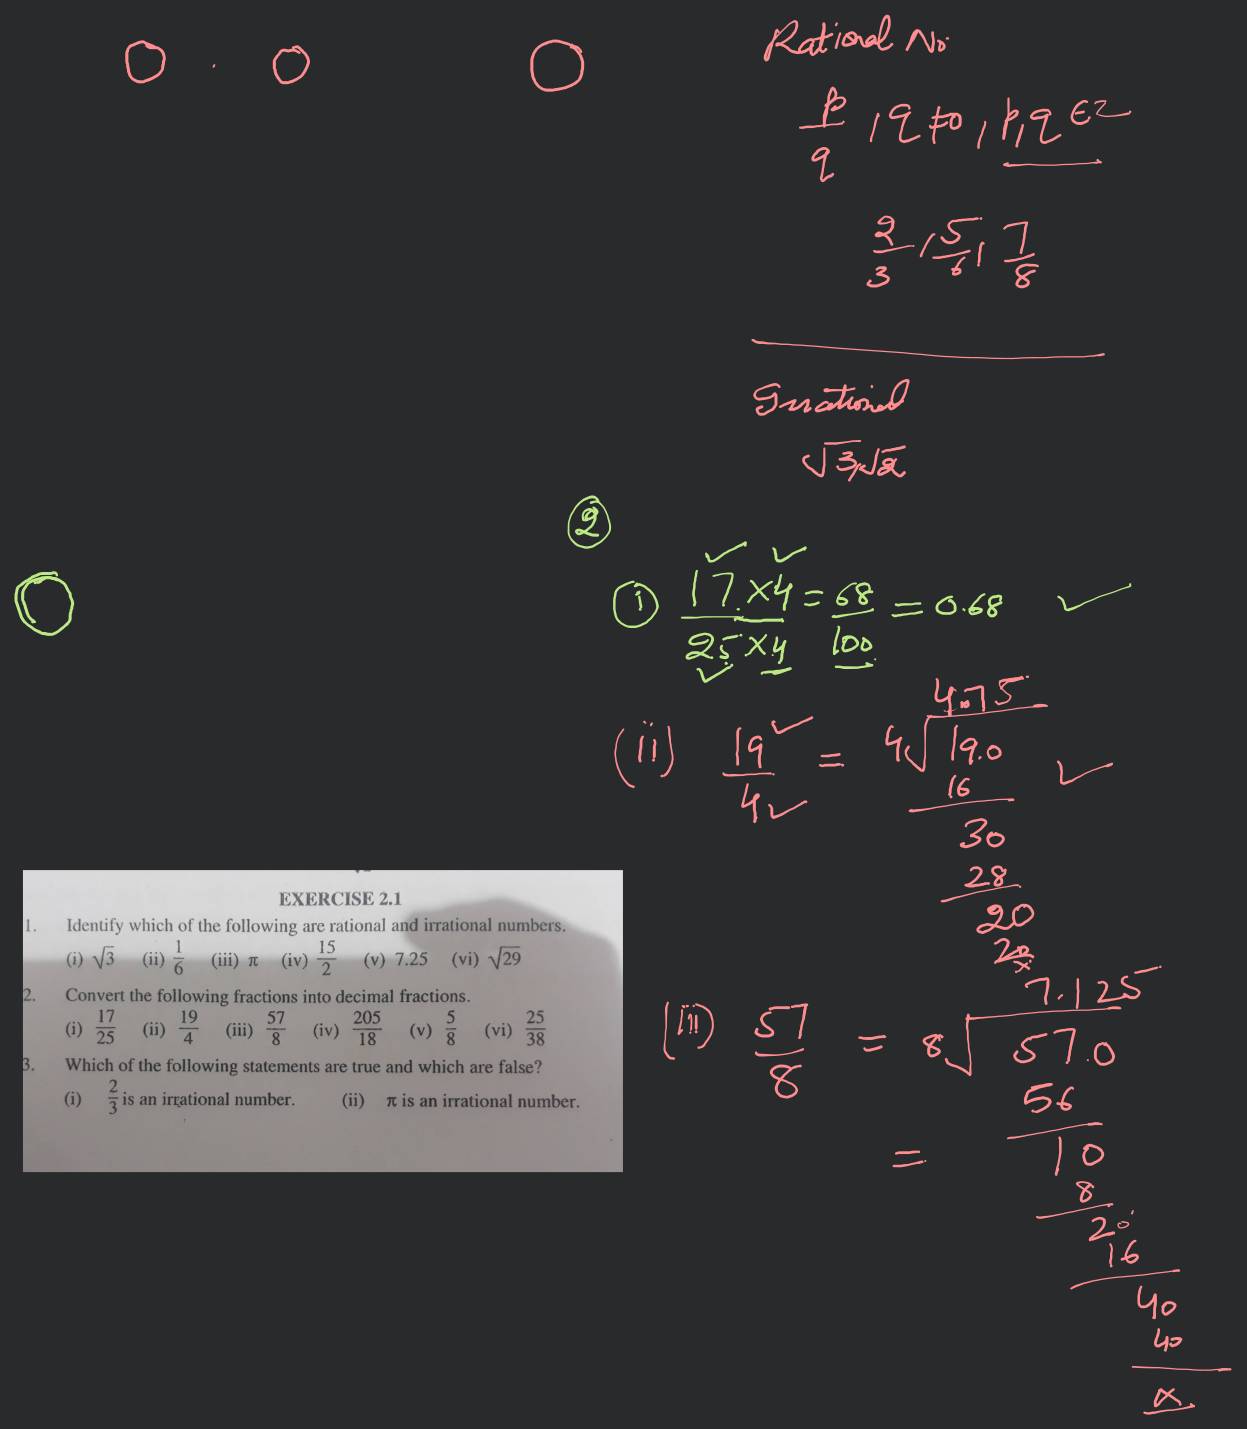 Rational No.
p/q , q ≠ 0, p, q ∈ Z
2/3 , 5/6 , 7/8
Irrational
√3, √2
②
ⓘ 17 × 4 / 25 × 4 = 68/100 = 0.68 ✓
(ii) 19/4 =
4.75
4√19.0
16
30
28
20
20
×
(iii) 57/8 =
7.125
8√57.0
56
= 10
8
20
16
40
40
×
EXERCISE 2.1
1. Identify which of the following are rational and irrational numbers.
(i) √3 (ii) 1/6 (iii) π (iv) 15/2 (v) 7.25 (vi) √29
2. Convert the following fractions into decimal fractions.
(i) 17/25 (ii) 19/4 (iii) 57/8 (iv) 205/18 (v) 5/8 (vi) 25/38
3. Which of the following statements are true and which are false?
(i) 2/3 is an irrational number. (ii) π is an irrational number.